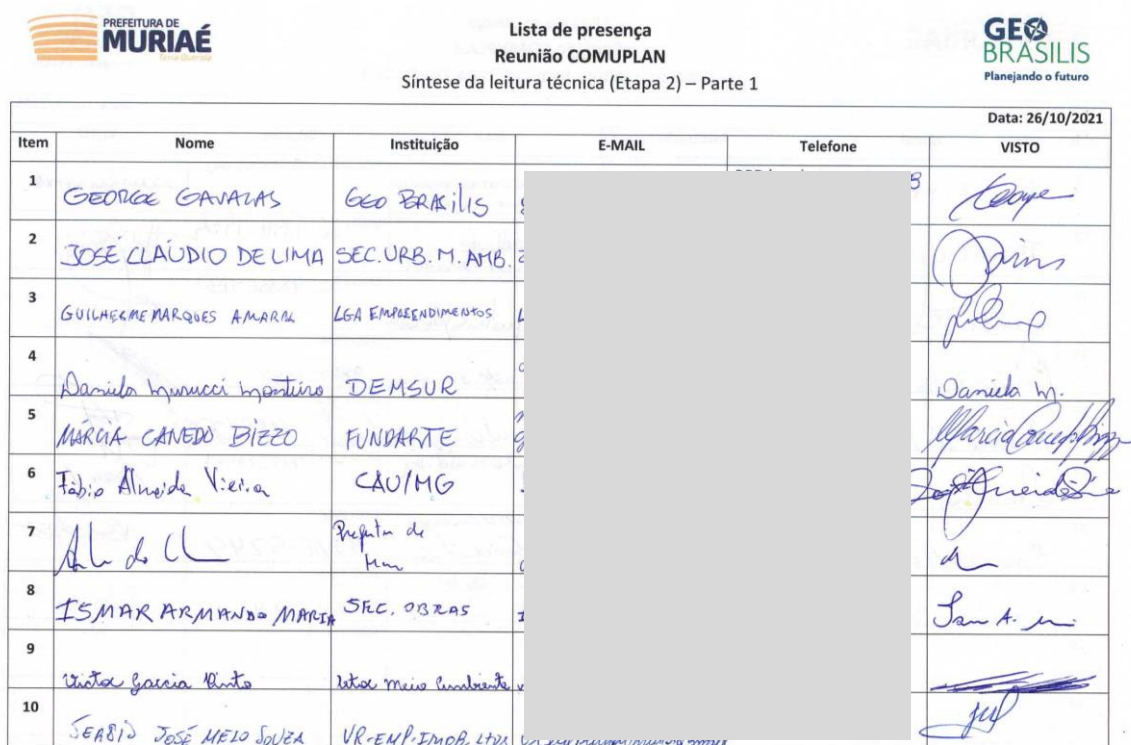 PREFEITURA DE
MURIAÉ
Terra Querida
Lista de presença
Reunião COMUPLAN
Síntese da leitura técnica (Etapa 2) – Parte 1
GEO
BRASILIS
Planejando o futuro
Data: 26/10/2021
Item Nome Instituição E-MAIL Telefone VISTO
1 GEORGE GAVALAS GEO BRASILIS
2 JOSÉ CLÁUDIO DE LIMA SEC. URB. M. AMB.
3 GUILHERME MARQUES AMARAL LGA EMPREENDIMENTOS
4 Daniela Murucci Monteiro DEMSUR Daniela M.
5 MÁRCIA CANEDO BIZZO FUNDARTE
6 Fábio Almeida Vieira CAU/MG
7 de
8 ISMAR ARMANDO MARIA SEC. OBRAS
9 Victor Garcia Pinto Meio Ambiente
10 SERGIO JOSÉ MELO SOUZA VR-EMP. IMOB. LTDA